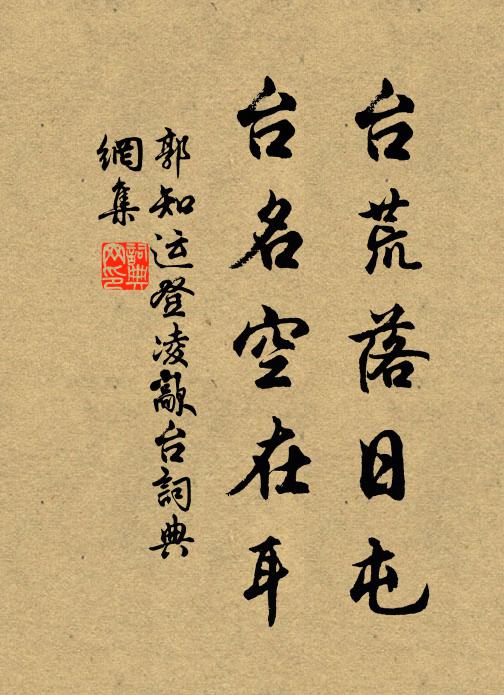 台荒落日屯
台名空在耳
郭知运登凌歊台詞典
網集
詞典
网印